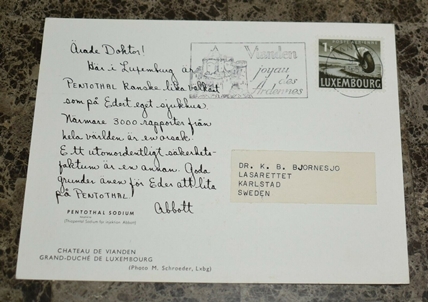 Ärade Doktor!
Här i Luxemburg är
PENTOTHAL kanske lika välkänt
som på Edert eget sjukhus.
Närmare 3000 rapporter från
hela världen är en orsak.
Ett utomordentligt säkerhets-
faktum är en annan. Goda
grunder även för Eder att lita
på PENTOTHAL.
Abbott
PENTOTHAL SODIUM
CHATEAU DE VIANDEN
GRAND-DUCHÉ DE LUXEMBOURG
(Photo M. Schroeder, Lxbg)
Vianden
joyau
des
Ardennes
1F
LUXEMBOURG
DR. K. B. BJORNESJO
LASARETTET
KARLSTAD
SWEDEN